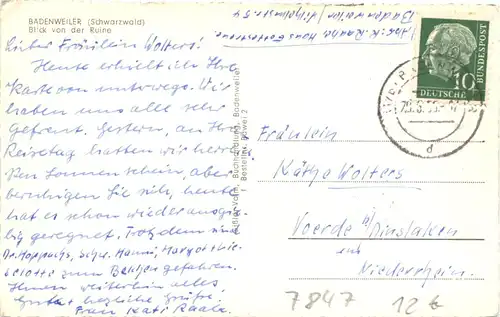 BADENWEILER (Schwarzwald)
Blick von der Ruine
Abs: K. Raabe Haus
Badenweiler Wilhelmstr. 54
Liebes Fräulein Wolters!
Heute erhielt ich Ihre
Karte von unterwegs. Wir
haben uns alle sehr
gefreut. Gestern, an Ihrem
Reisetag hatten wir herrli-
chen Sonnenschein, aber
beruhigen Sie sich, heute
hat es schon wieder ausgie-
big geregnet. Trotzdem sind
Dr. Schw. Hanni, Margot, Lie-
selotte zum Belchen gefahren.
Ihnen weiterhin alles
Gute + herzliche Grüße.
Frau Kati Raabe
Buchhandlung, Badenweiler
Bestellnr.
10
DEUTSCHE BUNDESPOST
d
Fräulein
Käthe Wolters
Voerde b/Dinslaken
Niederrhein
7847
12 €